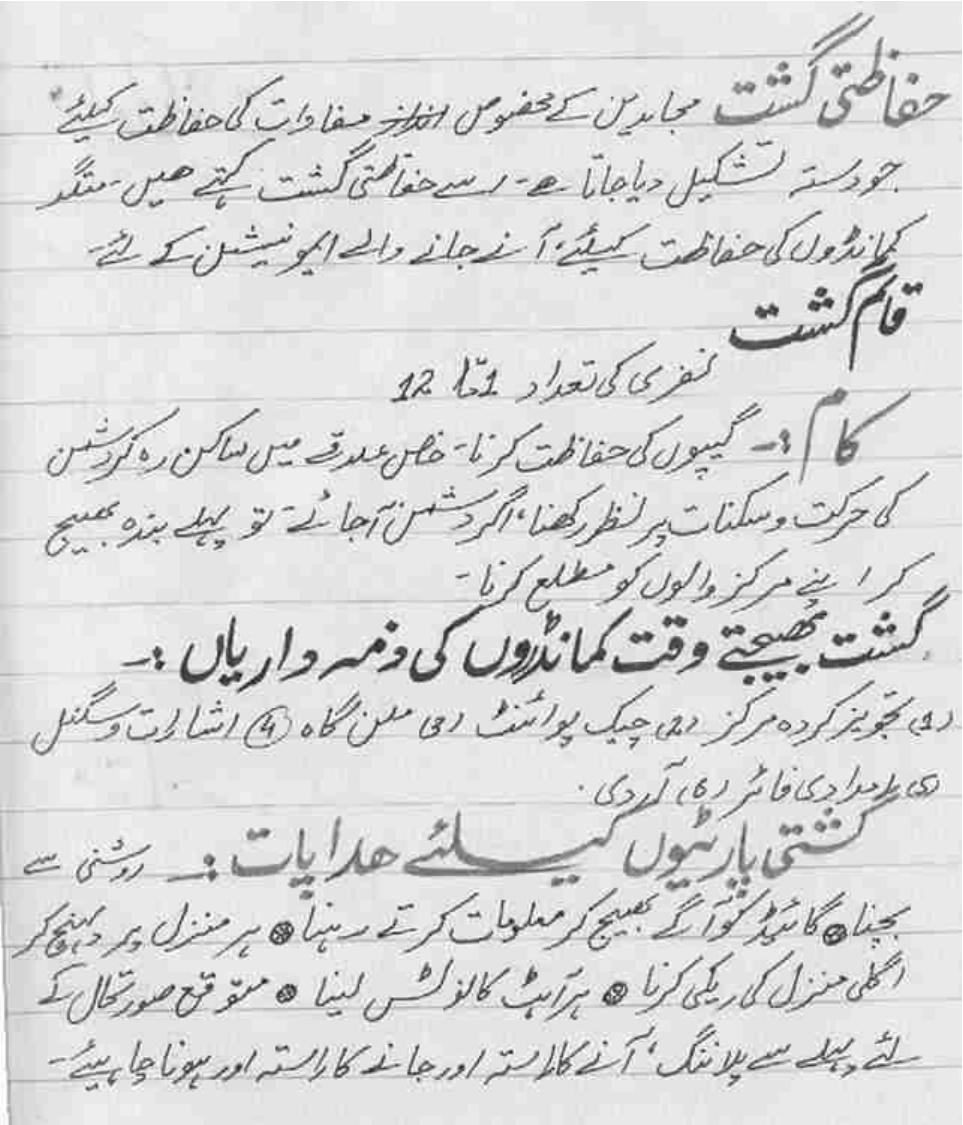 حفاظتی گشت مجاہدین کے مخصوص مفادات کی حفاظت کیلئے
جو دستہ تشکیل دیا جاتا ہے۔ اسے حفاظتی گشت کہتے ھیں۔ مثلاً
کمانڈوں کی حفاظت کیلئے، آنے جانے والے ایمونیشن کے لئے۔
قائم گشت
نفری کی تعداد 1 تا 12
کام :۔ کیمپوں کی حفاظت کرنا۔ خاص علاقے میں ساکن رہ کر دشمن
کی حرکت و سکنات پر نظر رکھنا، اگر دشمن آجائے۔ تو پہلے بندہ بھیج
کر اپنے مرکز والوں کو مطلع کرنا۔
گشت بھیجتے وقت کمانڈروں کی ذمہ داریاں :۔
(1) تجویز کردہ مرکز (2) چیک پوائنٹ (3) ملن گاہ (4) اشارات و سگنل
(5) امدادی فائر (6) آر وی۔
گشتی پارٹیوں کیلئے ھدایات :۔ روشنی سے
بچنا ⊛ گائیڈ کو آگے بھیج کر معلومات کرتے رہنا ⊛ ہر منزل پر پہنچ کر
اگلی منزل کی ریکی کرنا ⊛ ہر آہٹ کا نوٹس لینا ⊛ متوقع صورتحال کے
لئے پہلے سے پلاننگ، آنے کا راستہ اور جانے کا راستہ اور ہونا چاہیئے۔